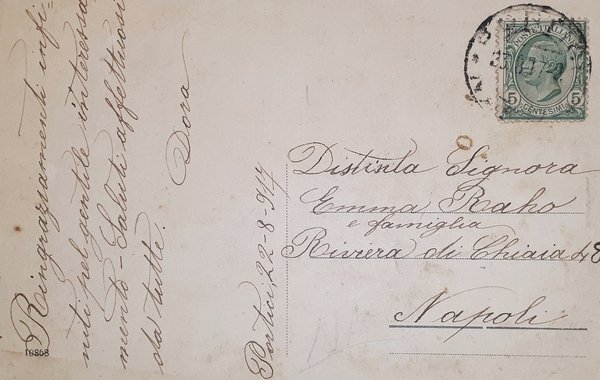 Ringraziamenti infi-
niti pel gentile interessa
mento - Saluti affettuosi
da tutte.
Dora
Portici, 22-8-917
Distinta Signora
Emma Raho
e famiglia
Riviera di Chiaia 48
Napoli
18868
POSTE ITALIANE
5 5
CENTESIMI